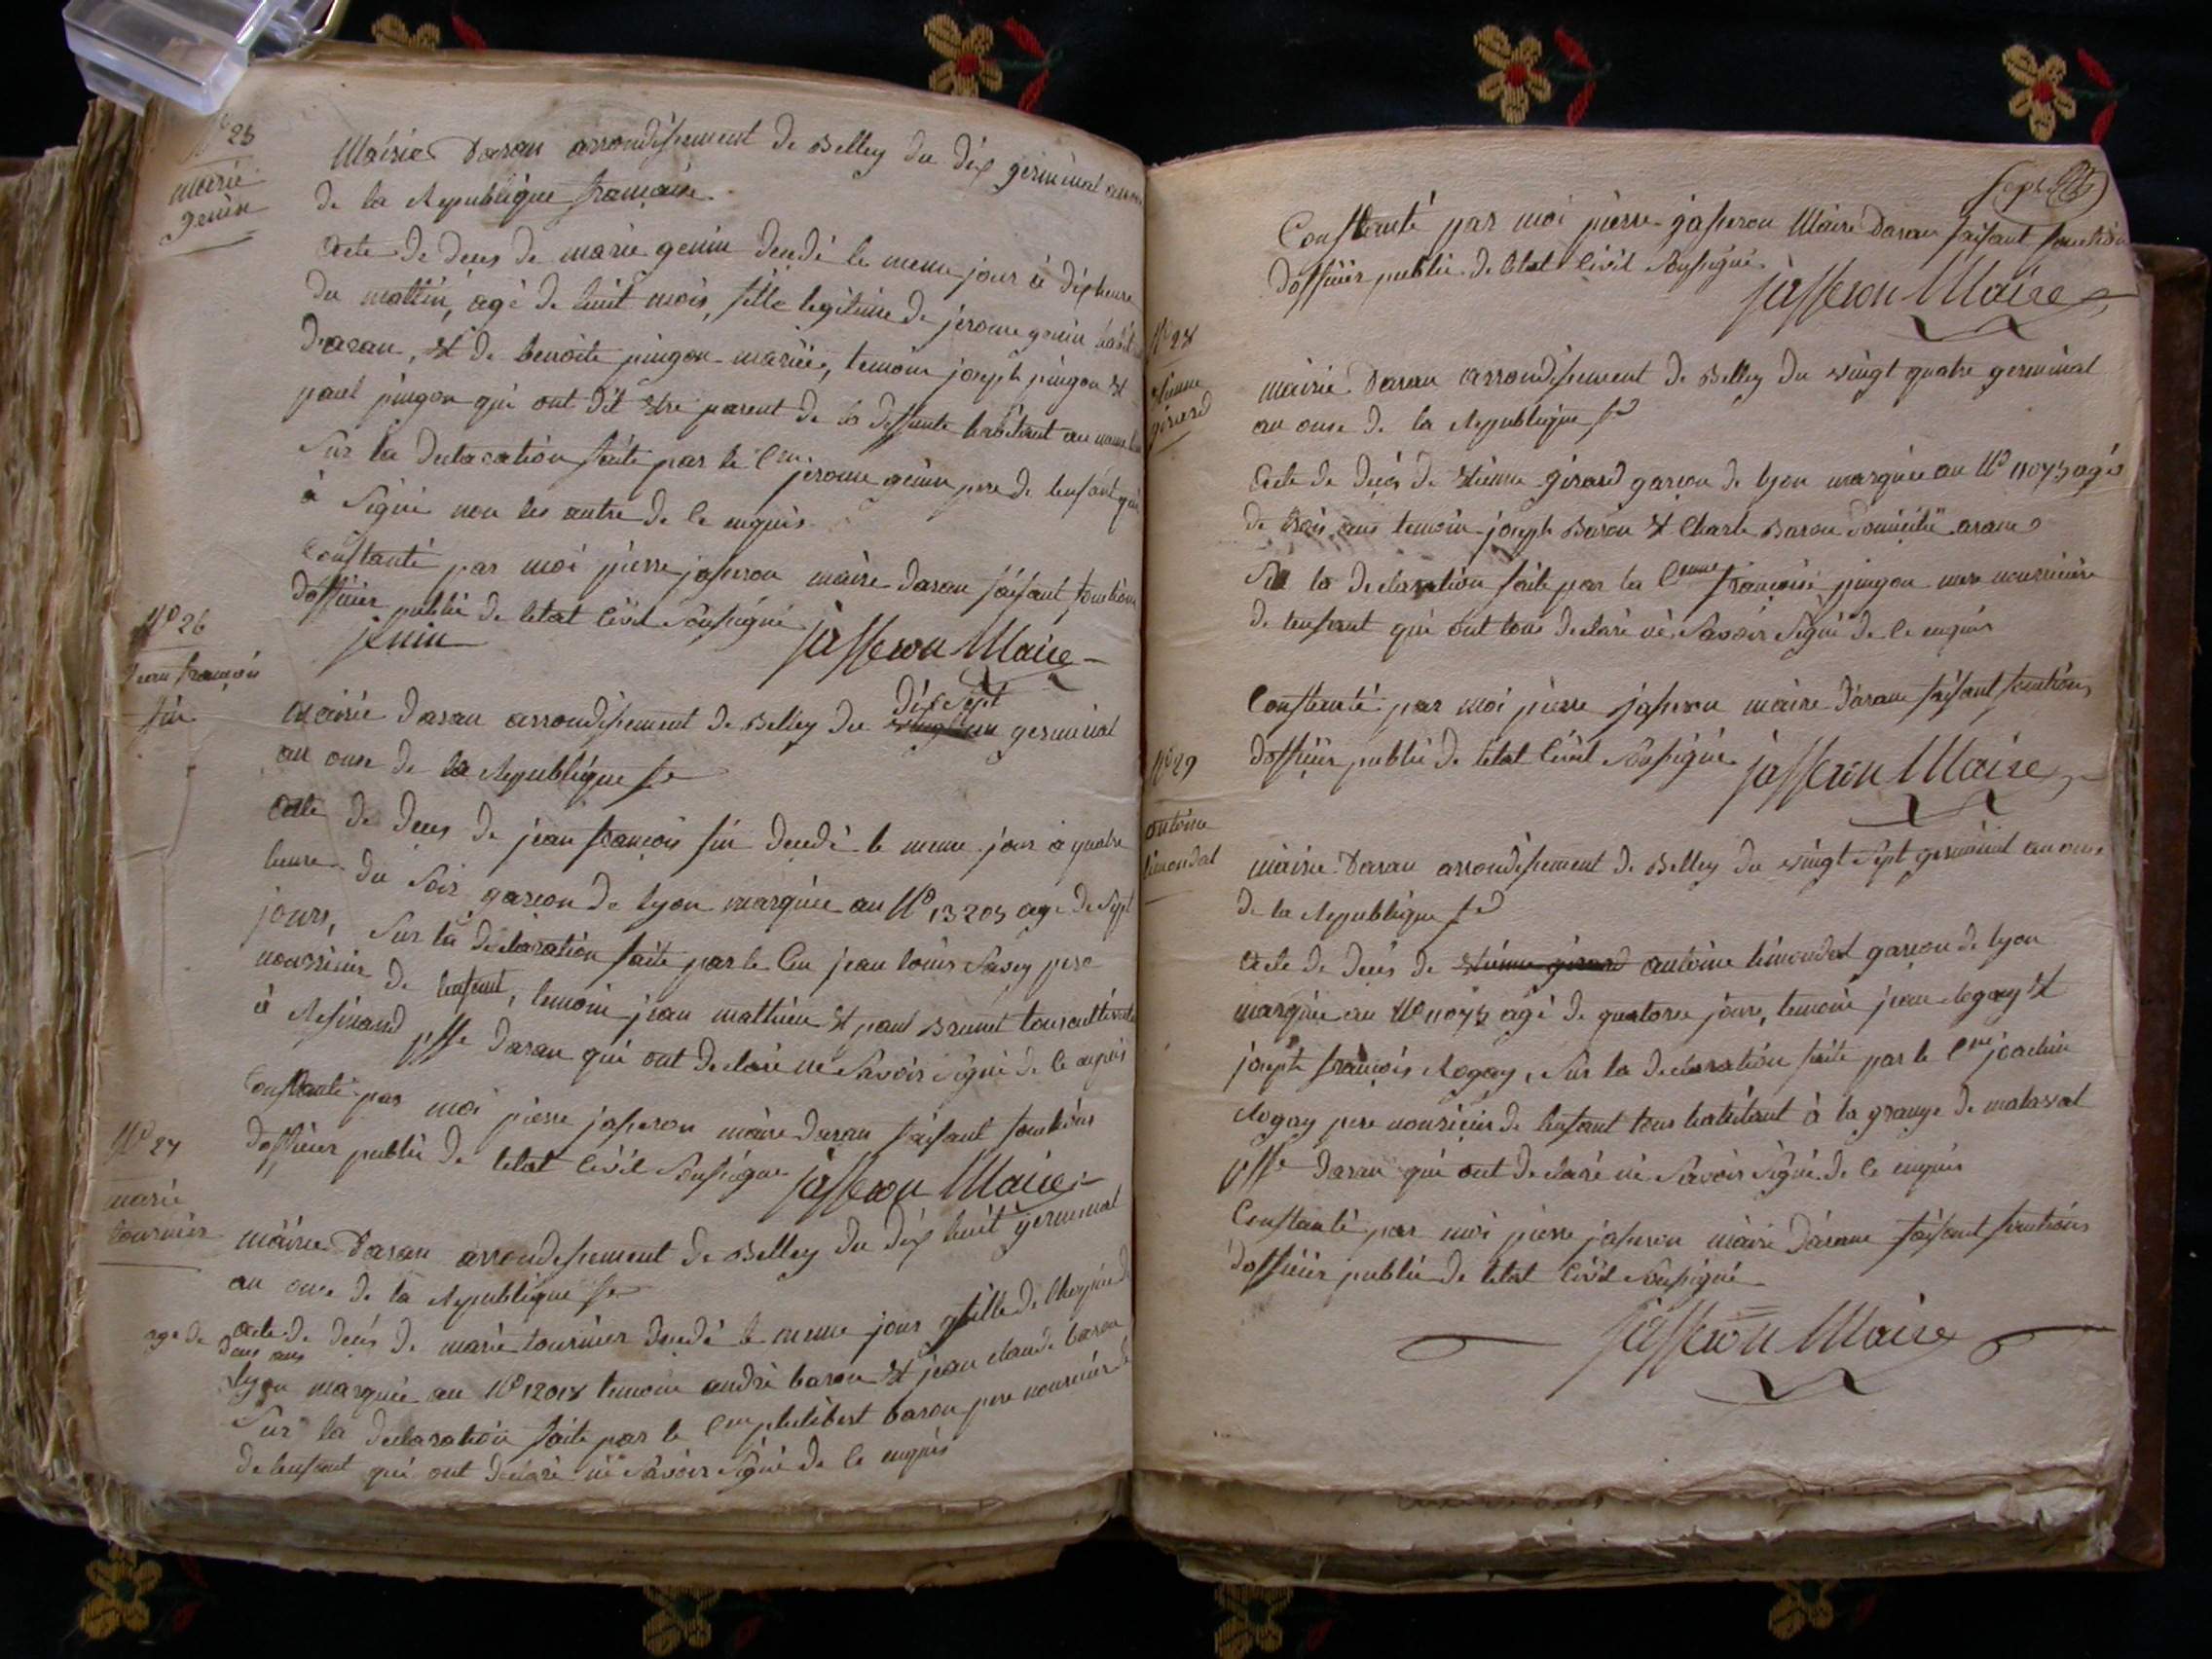 N° 25
marie
genin
Mairie Daran arrondissement de Belley du dix germinal
de la Republique francaise
Acte de deces de marie genin decedé le meme jour à dix heure
du mattin, agé de huit mois, fille legitime de jerome genin
Daran, et de benoite pingon mariée, temoin joseph pingon et
paul pingon qui ont dit etre parent de la deffunte habitant au meme
Sur la declaration faite par le Cen jerome genin pere de lenfant qui
à Signé non les autre de ce enquis
Constanté par moi pierre jasseron maire daran faisant fonctions
dofficier public de letat Civil Soussigné
jenin Jasseron Maire
N° 26
jean françois
fin
Mairie daran arrondissement de Belley du dix Sept germinal
an onze de la Republique fse
Acte de deces de jean francois fin decedé le meme jour à quatre
heure du Soir garcon de lyon marquée au N° 13205 age de Sept
jours, Sur la declaration faite par le Cen jean louis Savey pere
nourricier de lenfant, temoin jean mathieu et paul Brunet tous cultivateur
à Resinand psse Daran qui ont declaré ne Savoir Signé de ce enquis
Constanté par moi pierre jasseron maire Daran faisant fonctions
dofficier public de letat Civil Soussigné Jasseron Maire
N° 27
marie
tournier
mairie Daran arrondissement de Belley du dix huit germinal
an onze de la Republique fse
Acte de deces de marie tournier decedé le meme jour fille de
age de deux ans
lyon marquée au N° 12018 temoin andré baron et jean claude baron
Sur la declaration faite par le Cen philibert baron pere nourricier
de lenfant qui ont declaré ne Savoir Signé de ce enquis
Constanté par moi pierre jasseron Maire Daran faisant fonction
dofficier public de letat Civil Soussigné
Jasseron Maire
N° 28
etienne
girard
mairie Daran arrondissement de Belley du vingt quatre germinal
an onze de la Republique fse
Acte de deces de etienne girard garcon de lyon marquée au N° 11075 agé
de trois ans temoin joseph Baron et Charle Baron domicilié arane
Sur la declaration faite par la Cenne françoise pingon mere nourriciere
de lenfant qui ont tous declaré ne Savoir Signé de ce enquis
Constanté par moi pierre jasseron maire Darane faisant fonctions
dofficier public de letat Civil Soussigné Jasseron Maire
N° 29
antoine
limondal
mairie Daran arrondissement de Belley du vingt Sept germinal an onze
de la Republique fse
Acte de deces de etienne girard antoine limondal garcon de lyon
marquée au N° 11075 agé de quatorze jours, temoin jean Rogay et
joseph françois Rogay, Sur la declaration faite par le Cen joachin
Rogay pere nourricier de lenfant tous habitant à la grange de malaval
psse Daran qui ont declaré ne Savoir Signé de ce enquis
Constanté par moi pierre jasseron maire Darane faisant fonctions
dofficier public de letat Civil Soussigné
Jasseron Maire